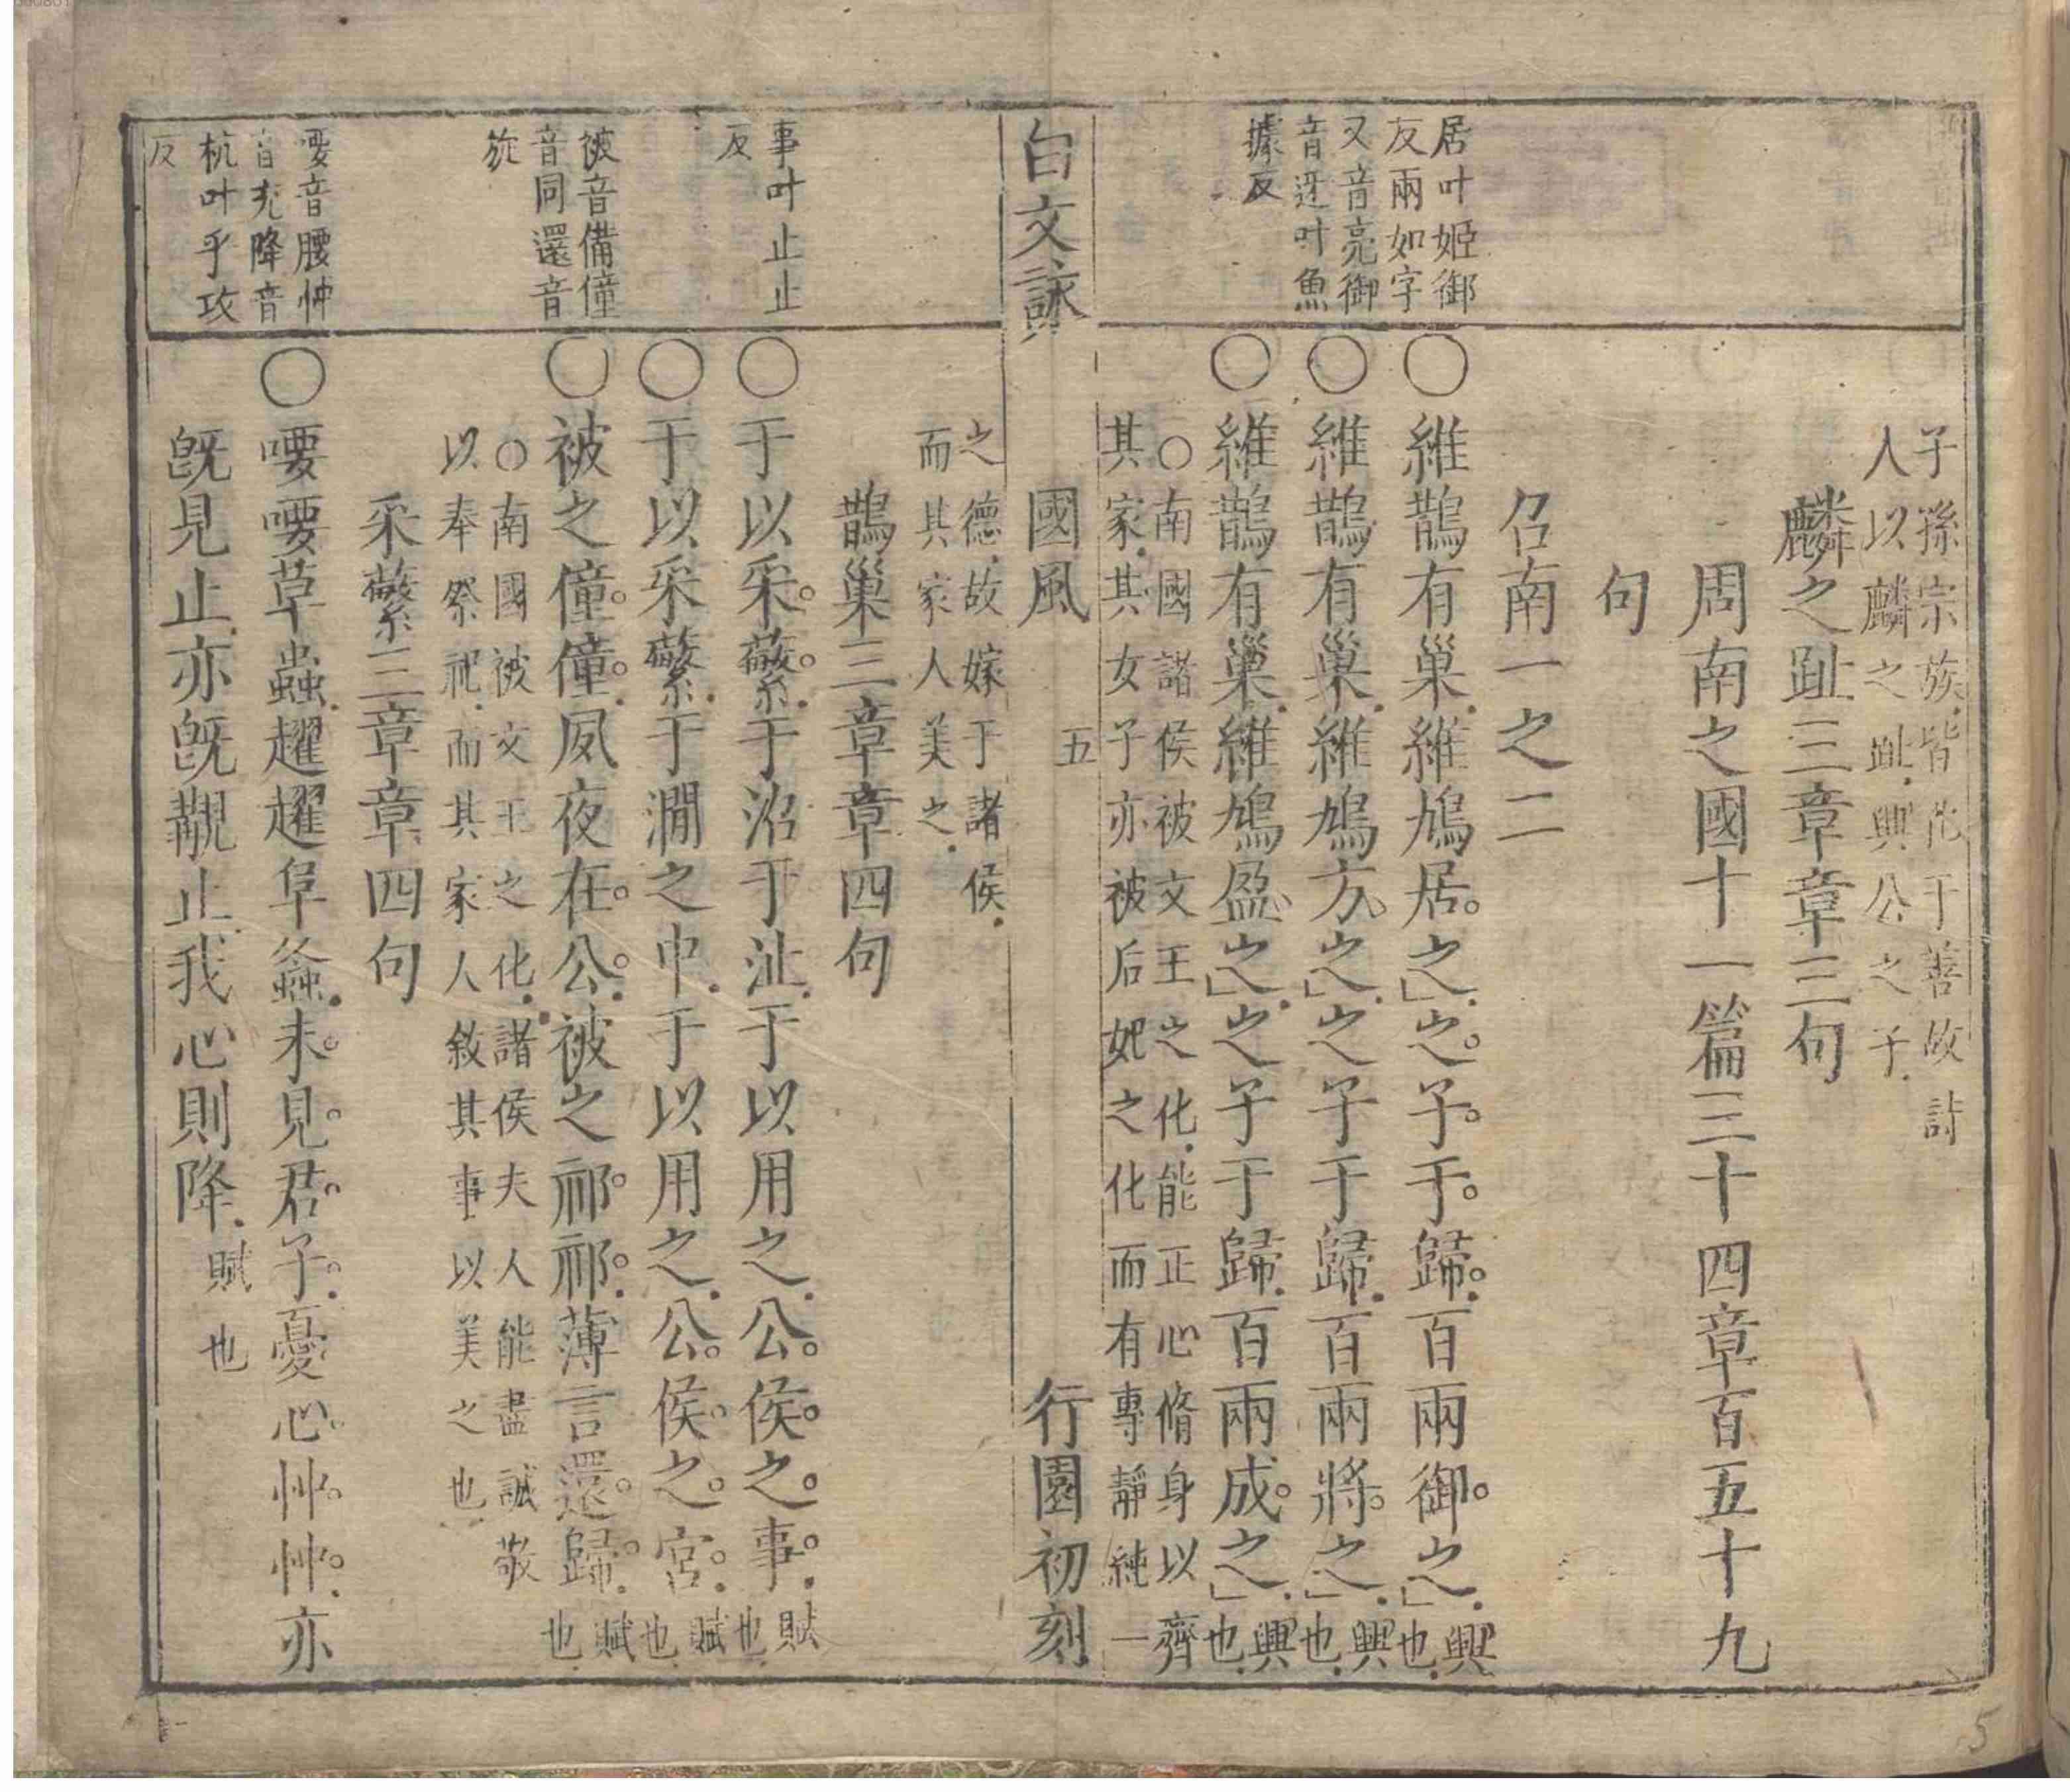 子孫宗族皆化于善故詩
人以麟之趾興公之子
麟之趾三章章三句
周南之國十一篇三十四章百五十九
句
召南一之二
居叶姬御
反兩如字
又音亮御
音迓叶魚
據反
○維鵲有巢維鳩居之之子于歸百兩御之興也
○維鵲有巢維鳩方之之子于歸百兩將之興也
○維鵲有巢維鳩盈之之子于歸百兩成之興也
○南國諸侯被文王之化能正心脩身以齊
其家其女子亦被后妃之化而有專靜純一
白文詠 國風 五 行園初刻
之德故嫁于諸侯
而其家人美之
鵲巢三章章四句
事叶止止
反
○于以采蘩于沼于沚于以用之公侯之事賦也
○于以采蘩于澗之中于以用之公侯之宮賦也
被音備僮
音同還音
旋
○被之僮僮夙夜在公被之祁祁薄言還歸賦也
○南國被文王之化諸侯夫人能盡誠敬
以奉祭祀而其家人敘其事以美之也
采蘩三章章四句
喓音腰忡
音充降音
杭叶乎攻
反
○喓喓草蟲趯趯阜螽未見君子憂心忡忡亦
旣見止亦旣觀止我心則降賦也
5